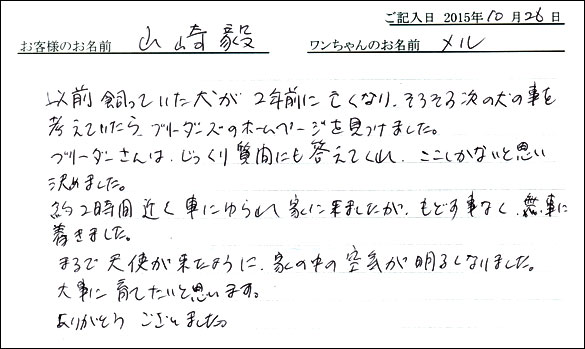 ご記入日 2015年10月26日
お客様のお名前 山崎毅 ワンちゃんのお名前 メル
以前飼っていた犬が2年前に亡くなり、そろそろ次の犬の事を
考えていたら、ブリーダーズのホームページを見つけました。
ブリーダーさんは、じっくり質問にも答えてくれ、ここしかないと思い
決めました。
約2時間近く車にゆられて家に来ましたが、もどす事なく、無事に
着きました。
まるで天使が来たように、家の中の空気が明るくなりました。
大事に育てたいと思います。
ありがとうございました。